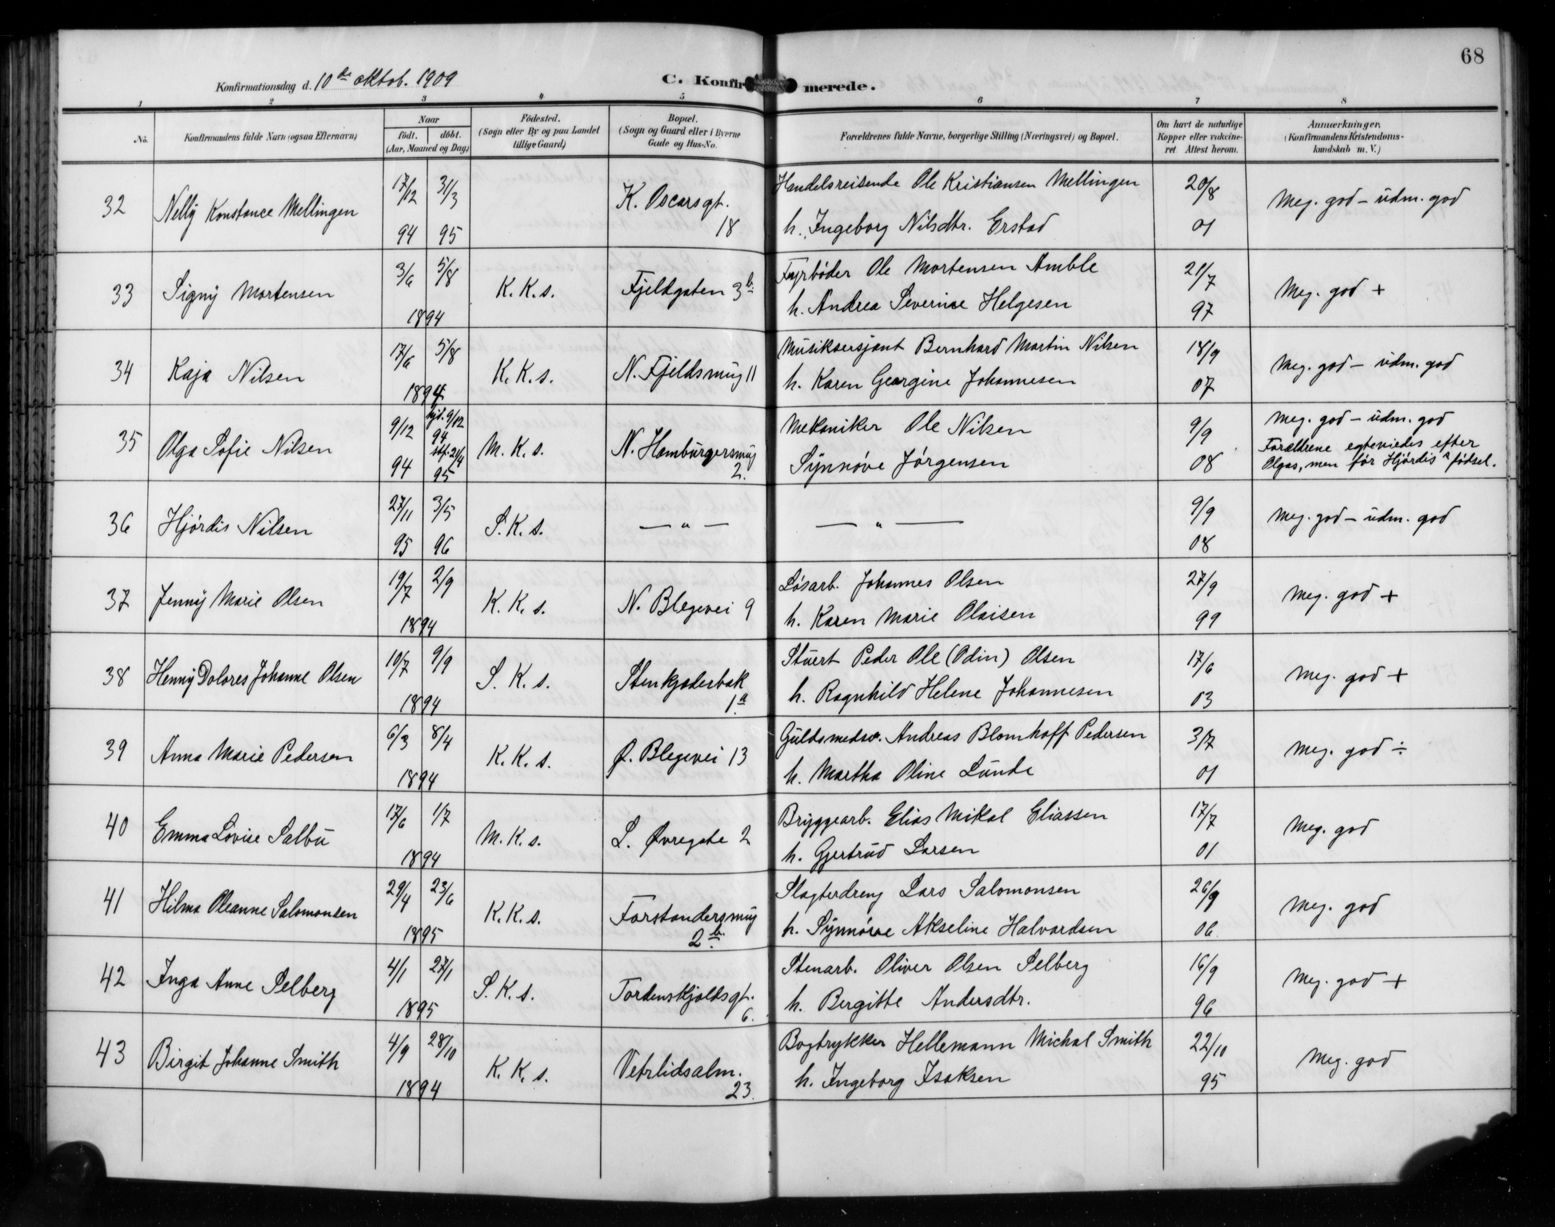 68
Konfirmationsdag d. 10de oktob. 1909
C. Konfirmerede.
1 2 3 4 5 6 7 8
No.
Konfirmandens fulde Navn (ogsaa Efternavn)
Naar
født. døbt.
(Aar, Maaned og Dag)
Fødested.
(Sogn eller By og paa Landet
tillige Gaard)
Bopæl.
(Sogn og Gaard eller i Byerne
Gade og Hus-No.
Forældrenes fulde Navne, borgerlige Stilling (Næringsvei) og Bopæl.
Om havt de naturlige
Kopper eller vaccine-
ret Attest herom.
Anmærkninger.
(Konfirmandens Kristendoms-
kundskab m. V.)
32 Nelly Konstance Mellingen 17/12 94 31/3 95 K. Oscarsgt. 18
Handelsreisende Ole Kristiansen Mellingen
h. Ingeborg Nilsdtr. Erstad
20/8 01 Meg. god – udm. god
33 Signy Mortensen 3/6 5/8 1894 K. K. s. Fjeldgaten 3b
Fyrbøder Ole Mortensen Amble
h. Andrea Severine Helgesen
21/7 97 Meg. god +
34 Kaja Nilsen 17/6 5/8 1894 K. K. s. N. Fjeldsmug 11
Musiksersjant Bernhard Martin Nilsen
h. Karen Georgine Johannesen
18/9 07 Meg. god – udm. god
35 Olga Sofie Nilsen 9/12 94 hjd. 9/12 94 stf. 21/4 95 M. K. s. N. Hamburgersmug 2.
Mekaniker Ole Nilsen
Synnøve Jørgensen
9/9 08 Meg. god – udm. god
Forældrene egteviedes efter
Olgas, men før Hjørdis's fødsel.
36 Hjørdis Nilsen 27/11 95 3/5 96 S. K. s. — „ —
— „ —
9/9 08 Meg. god – udm. god
37 Jenny Marie Olsen 19/7 2/9 1894 K. K. s. N. Blegevei 9
Løsarb. Johannes Olsen
h. Karen Marie Olaisen
27/9 99 Meg. god +
38 Henny Dolores Johanne Olsen 10/7 9/9 1894 S. K. s. Stenkjoderbak 1a
Stuert Peder Ole (Odin) Olsen
h. Ragnhild Helene Johannesen
17/6 03 Meg. god +
39 Anna Marie Pedersen 6/3 8/4 1894 K. K. s. Ø. Blegevei 13
Guldsmedsv. Andreas Blomhoff Pedersen
h. Martha Oline Lunde
3/7 01 Meg. god ÷
40 Emma Lovise Salbu 17/6 1/7 1894 M. K. s. L. Øvregate 2
Bryggearb. Elias Mikal Eliassen
h. Gjertrud Larsen
17/7 01 Meg. god
41 Hilma Oleanne Salomonsen 29/4 23/6 1895 K. K. s. Forstandersmug 2b.
Slagterdreng Lars Salomonsen
h. Synnøve Akseline Halvordsen
26/9 06 Meg. god
42 Inga Anne Selberg 4/1 27/1 1895 S. K. s. Tordenskjoldsgt. 6.
Stenarb. Oliver Olsen Selberg
h. Bergitte Andersdtr.
16/9 96 Meg. god +
43 Birgit Johanne Smith 4/9 28/10 1894 K. K. s. Vetrlidsalm. 23.
Bogtrykker Hellemann Michal Smith
h. Ingeborg Isaksen
22/10 95 Meg. god